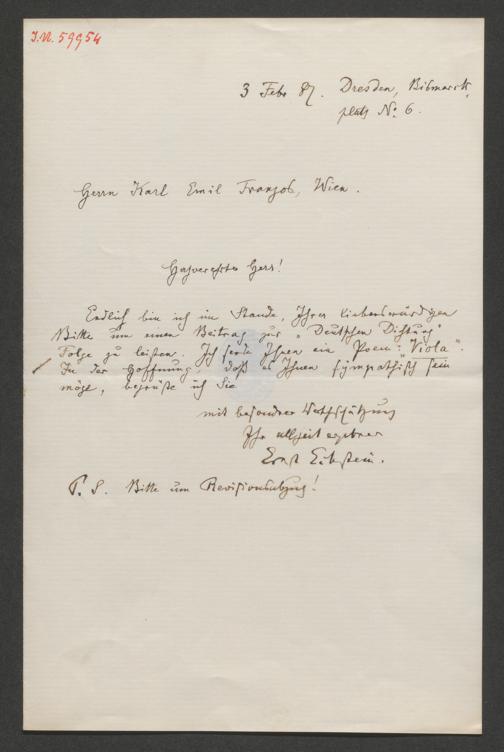 I.N. 59954
3 Febr 87. Dresden, Bismarck,
platz No. 6.
Herrn Karl Emil Franzos, Wien.
Hochverehrter Herr!
Endlich bin ich im Stande, Ihrer liebenswürdigen
Bitte um einen Beitrag zur "Deutschen Dichtung"
Folge zu leisten. Ich sende Ihnen ein Poem: "Viola".
In der Hoffnung, daß es Ihnen sympathisch sein
möge, begrüße ich Sie
mit besondrer Werthschätzung
Ihr allzeit ergebner
Ernst Eckstein.
P. S. Bitte um Revisionsabzug!